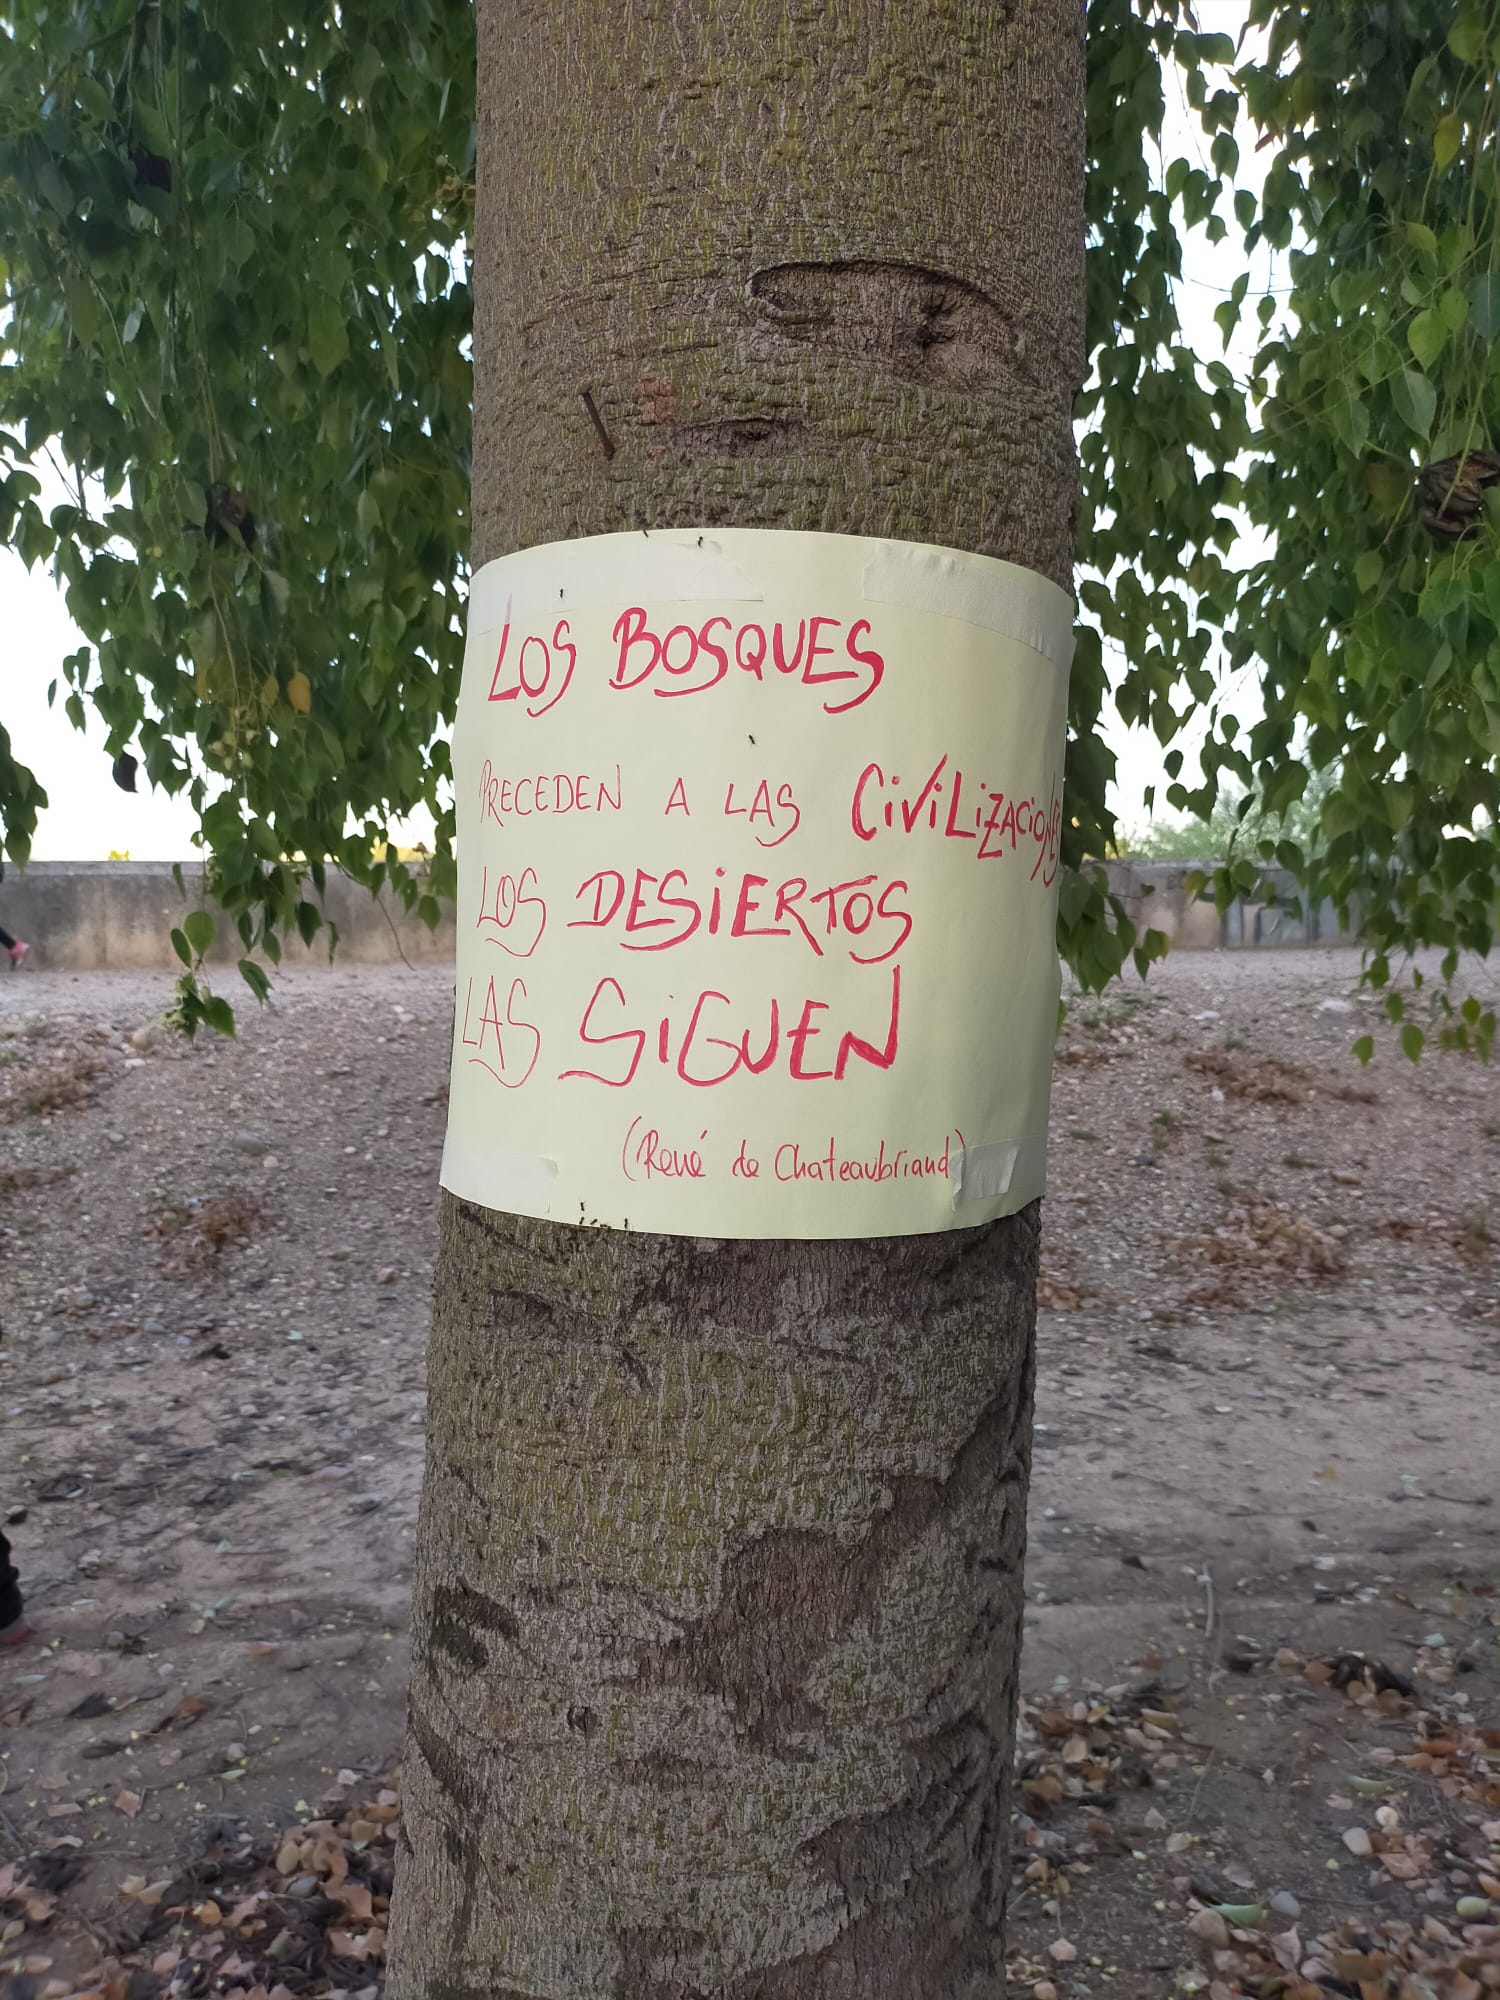 LOS BOSQUES
PRECEDEN A LAS CiViLiZACiONES
LOS DESiERTOS
LAS SiGUEN
(René de Chateaubriand)